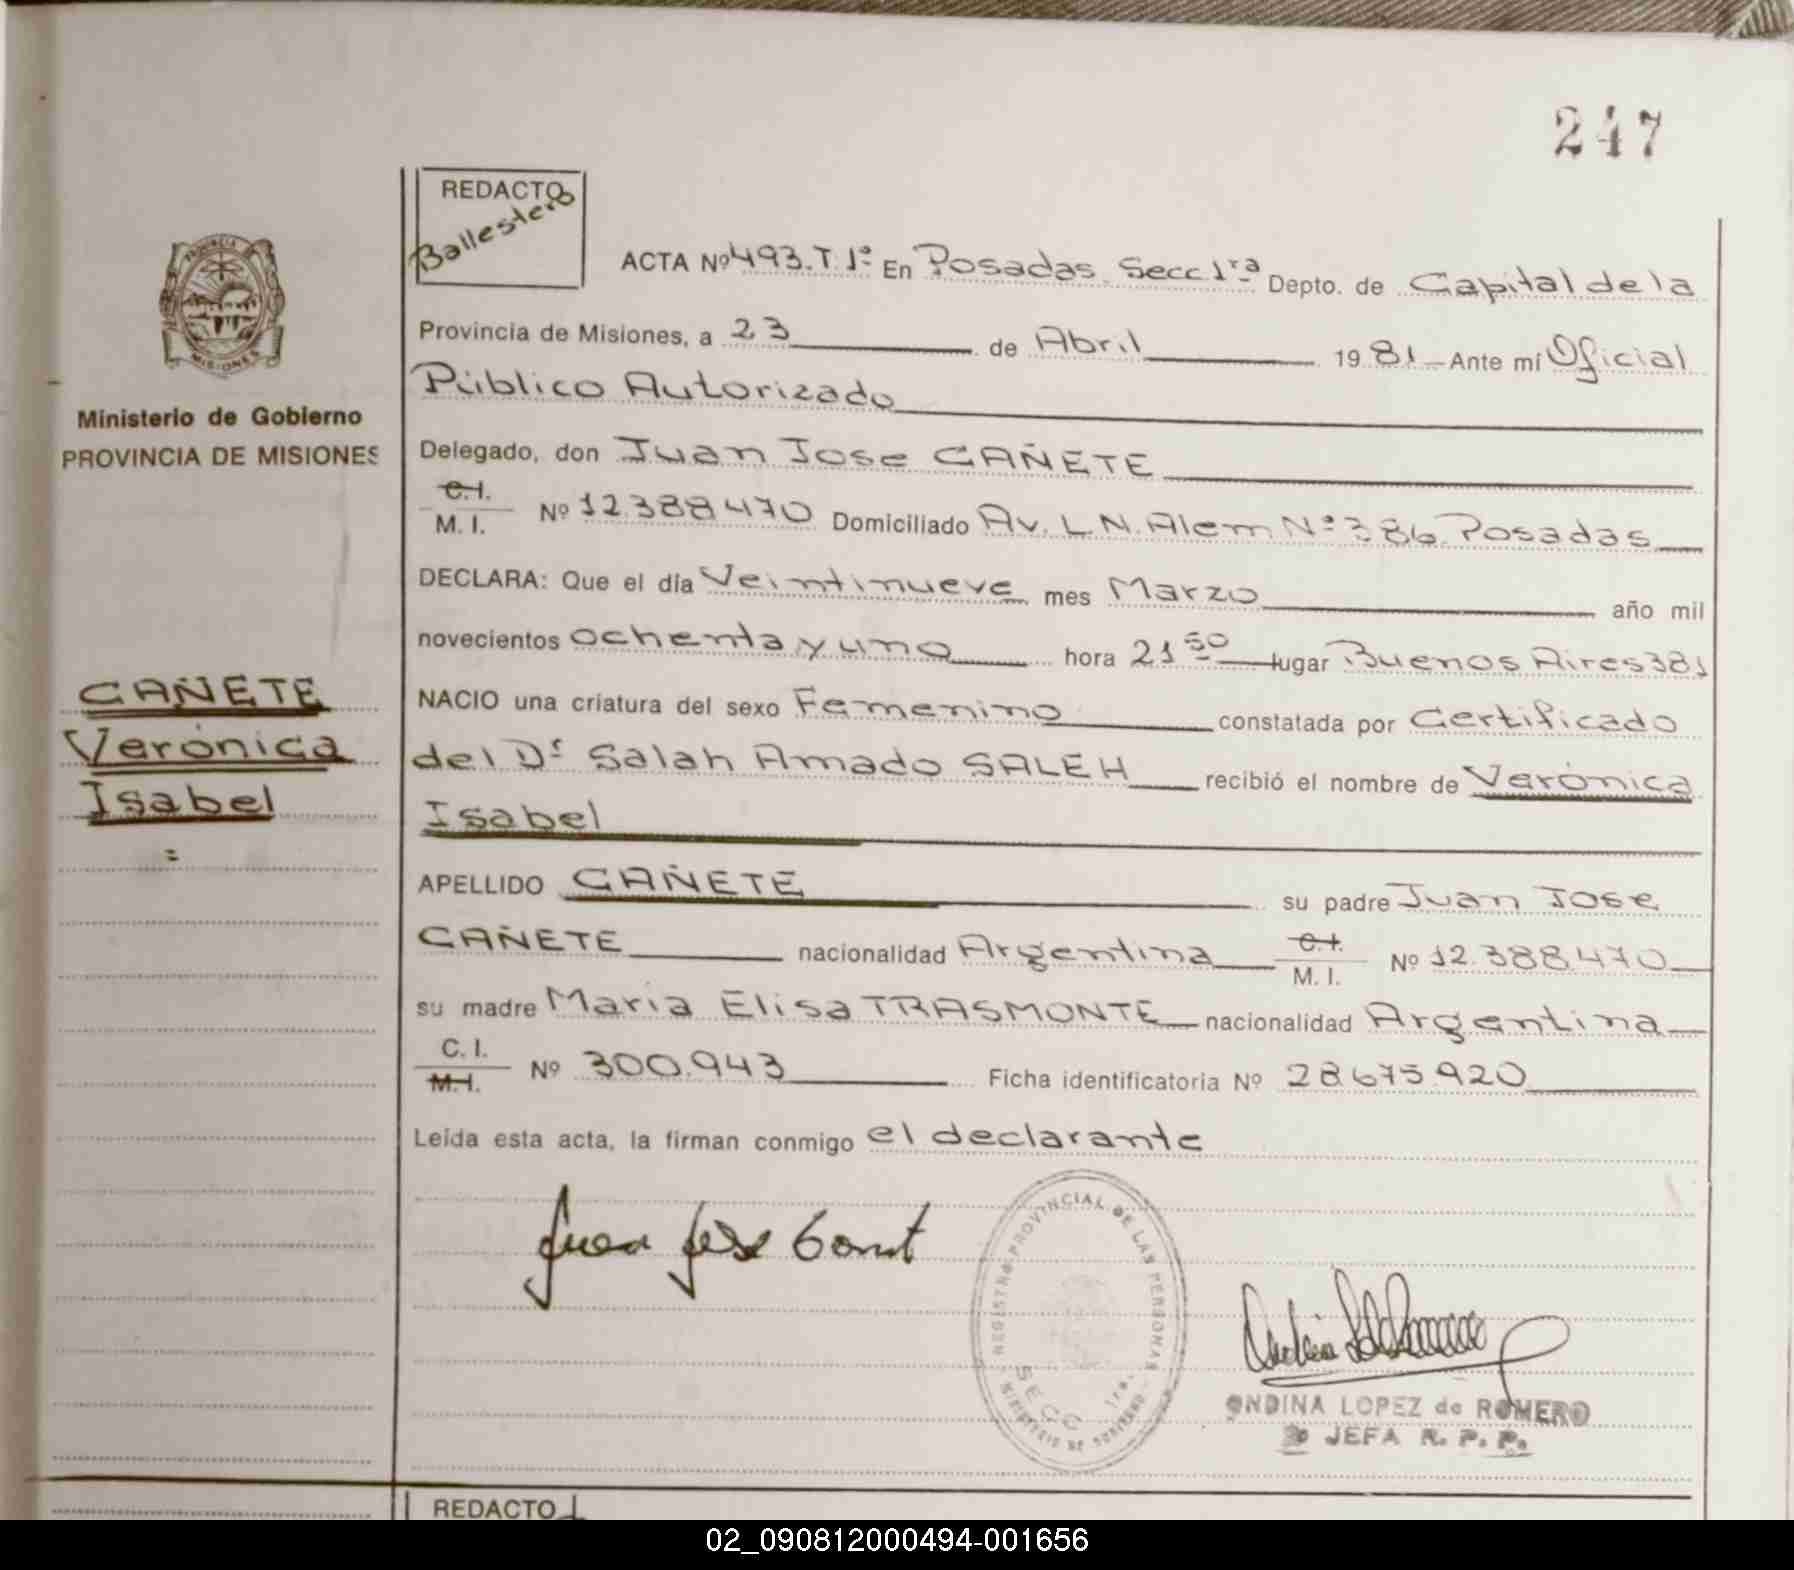 247
REDACTO
Ballestero
ACTA Nº 493.T.1º En Posadas Secc 1ra Depto. de Capital de la
Provincia de Misiones, a 23 de Abril 1981 Ante mí Oficial
Público Autorizado
Delegado, don Juan Jose CAÑETE
C.I.
M. I. Nº 12.388.470 Domiciliado Av. L.N. Alem Nº 386 Posadas
DECLARA: Que el día Veintinueve mes Marzo año mil
novecientos ochenta y uno hora 21 50 lugar Buenos Aires 381
NACIO una criatura del sexo Femenino constatada por Certificado
del Dr Salah Amado SALEH recibió el nombre de Verónica
Isabel
APELLIDO CAÑETE su padre Juan Jose
CAÑETE nacionalidad Argentina C.I. M. I. Nº 12.388.470
su madre Maria Elisa TRASMONTE nacionalidad Argentina
C. I.
M. I. Nº 300.943 Ficha identificatoria Nº 28.675.920
Leída esta acta, la firman conmigo el declarante
PROVINCIA
MISIONES
Ministerio de Gobierno
PROVINCIA DE MISIONES
CAÑETE
Verónica
Isabel
REGISTRO PROVINCIAL DE LAS PERSONAS
SECC. 1ra.
MINISTERIO DE GOBIERNO
ONDINA LOPEZ de ROMERO
JEFA R. P. P.
REDACTO
02_090812000494-001656